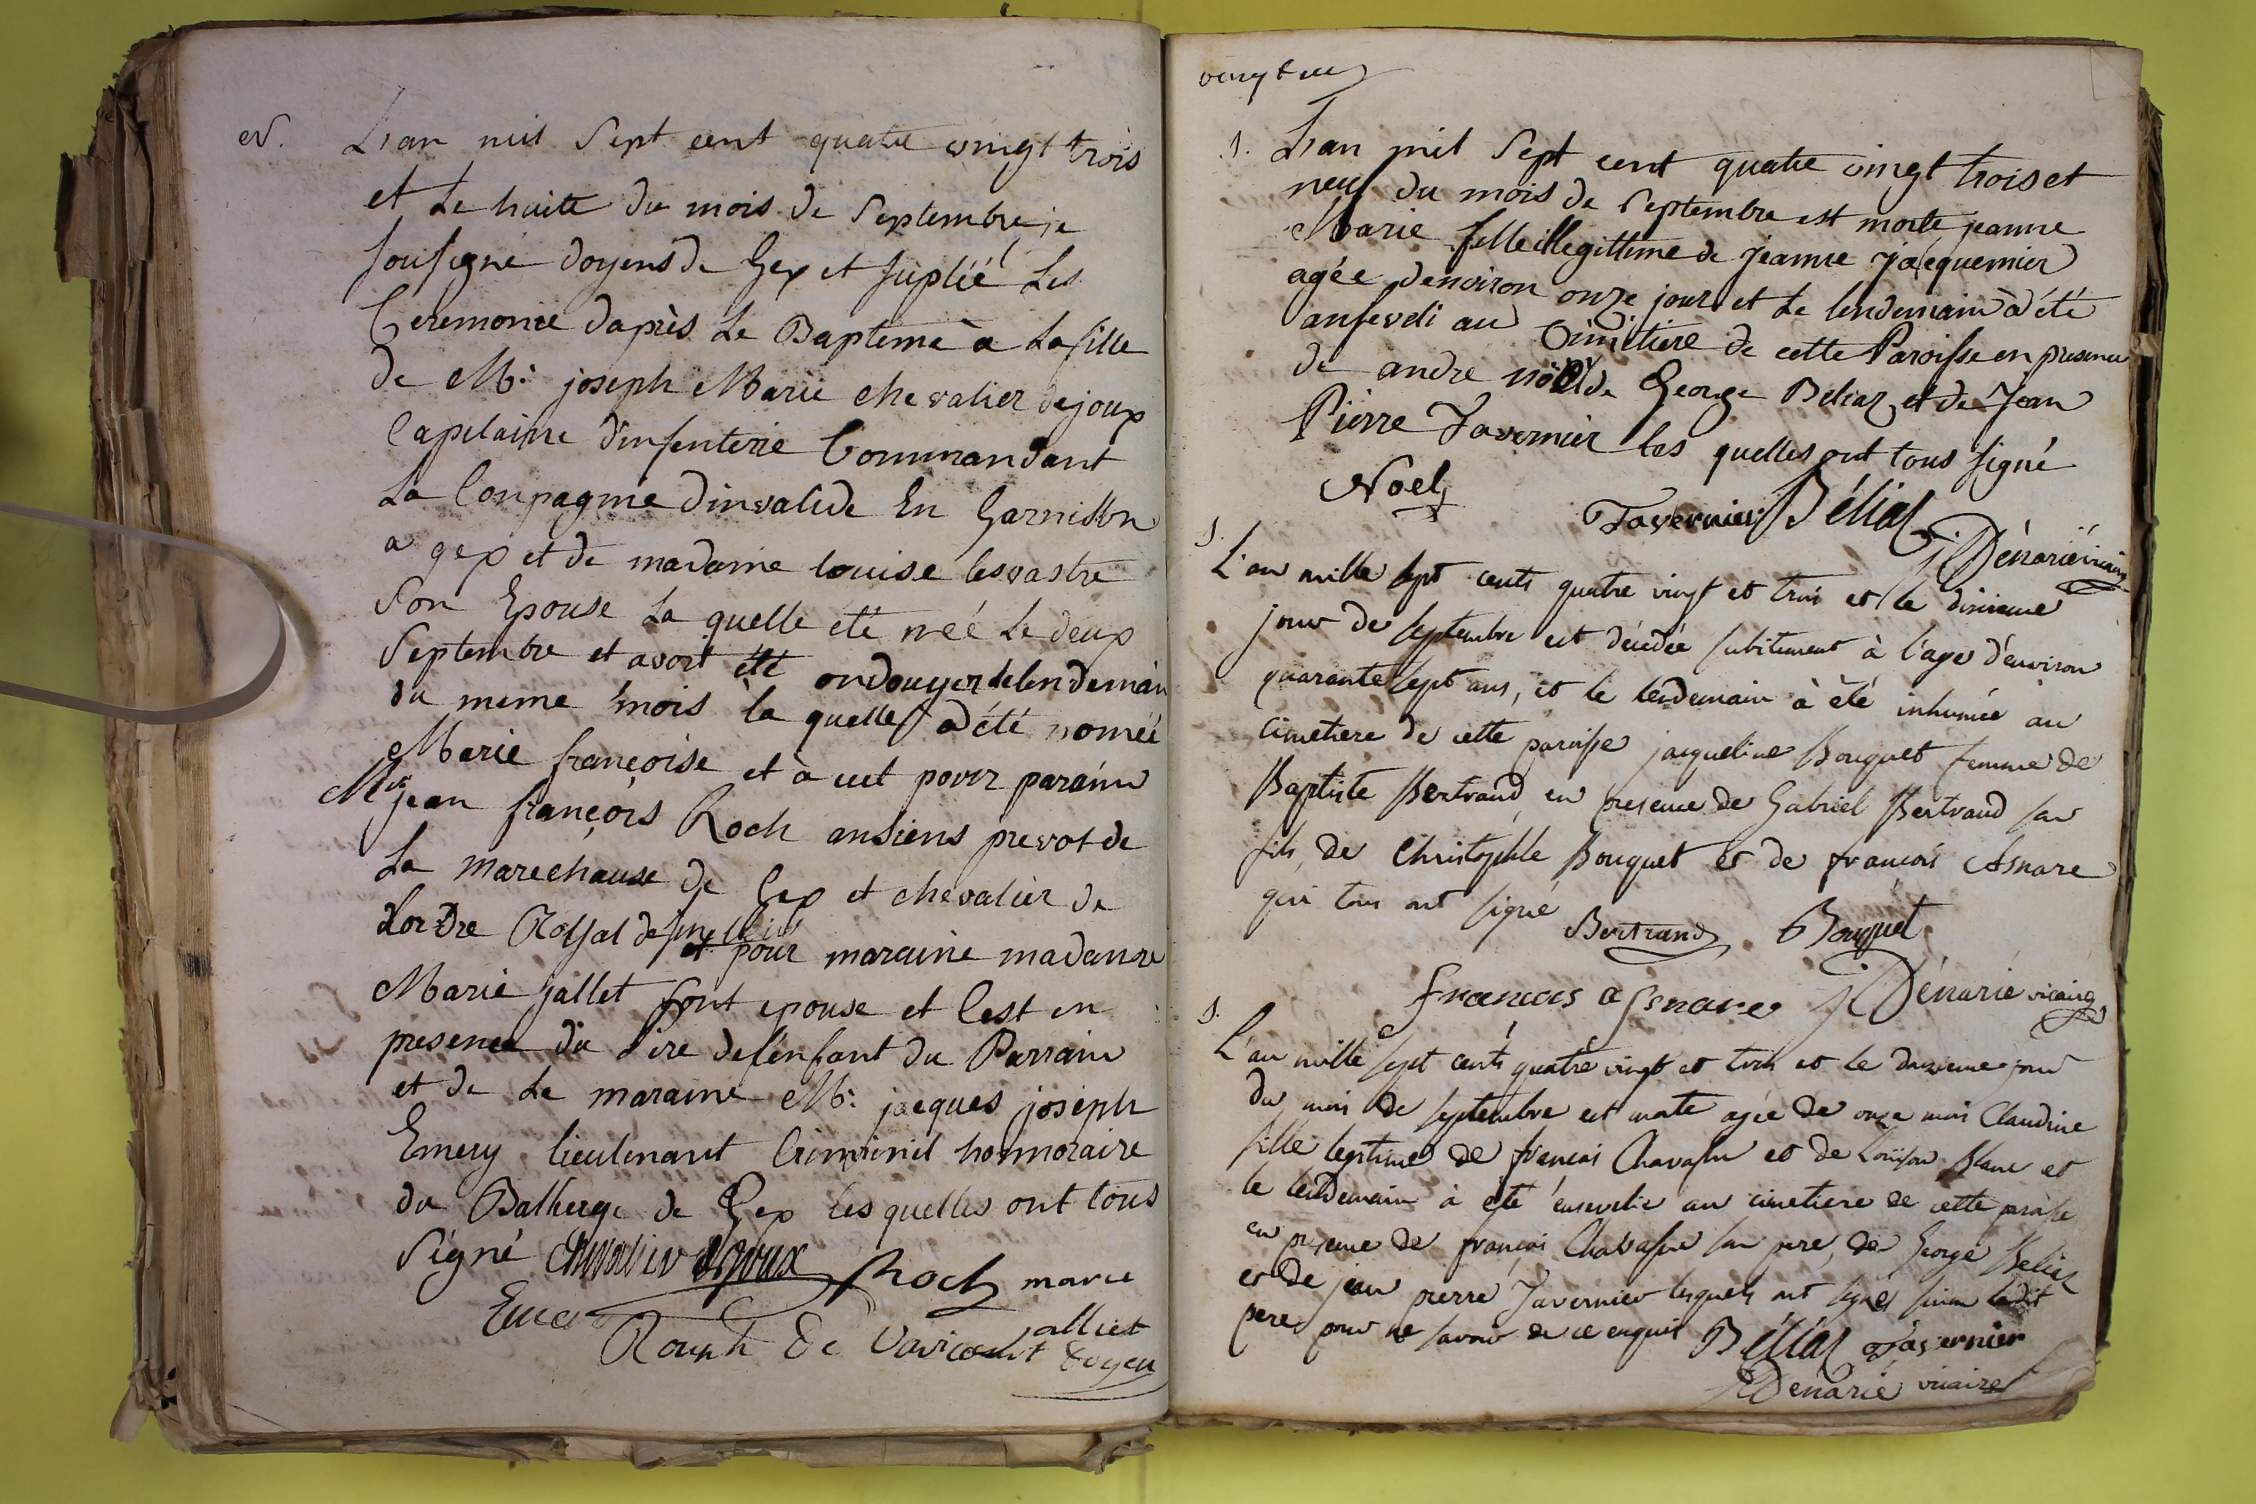 N. L'an mil Sept cent quatre vingt trois
et Le huite du mois de Septembre je
sousigné doyens de Gex et suplié Les
Ceremonie daprès Le Baptême à La fille
de Mr. joseph Marie chevalier dejoux
Capitaine d'infenterie Commandant
La Conpagnie d'invalide En Garnison
a gex et de madame louise lesvastre
Son Epouse La quelle été neé Le deux
Septembre et avoit été ondouyer le lendemain
du meme mois la quelle a été nomée
Marie françoise et à eut pour parain
Mr jean françois Roch ansiens prevot de
La marechause de Gex et chevalier de
Lordre Royal de
et pour maraine madame
Marie jallet sont epouse et Cest en
presence du Pere de l'enfant du Parrain
et de La maraine Mr. jacques joseph
Emery lieutenant Criminil honnoraire
du Balliage de Gex les quelles ont tous
Signé Chevalier dejoux Roch marie
Emery alliet
Rouph De Varicourt doyen
vingt un
S. L'an mil Sept cent quatre vingt trois et
neuf du mois de Septembre est morte jeanne
Marie fille illegittime de jeanne jacquemier
agée denviron onze jours et Le lendemain à été
anseveli au Cimitiere de cette Paroisse en presence
de andre nöel de George Béliaz et de Jean
Pierre Tavernier les quelles ont tous signé
Noel
Tavernier Béliaz
J Dénarié vicaire
S.
L'an mille sept cents quatre vingt et trois et le dixieme
jour de septembre est décedée subitement à l'age d'environ
quarante sept ans, et le lendemain à été inhumée au
cimetiere de cette paroisse jacqueline Bouquet femme de
Baptiste Bertrand, en presence de Gabriel Bertrand son
fils, de Christophle Bouquet et de francois Asnare
qui tous ont signé
Bertrand Bouquet
francois asnare J Dénarié vicaire
S.
L'an mille sept cents quatre vingt et trois et le douzieme jour
du mois de septembre est morte agée de onze mois Claudine
fille legitime de françois Chavasse et de Loüison Blanc et
le lendemain à été ensevelie au cimetiere de cette paroisse
en presence de françois Chavasse son pere, de George Beliaz
et de jean pierre Tavernier lesquels ont signés sinon ledit
pere pour ne savoir de ce enquis Béliaz Tavernier
J Dénarié vicaire